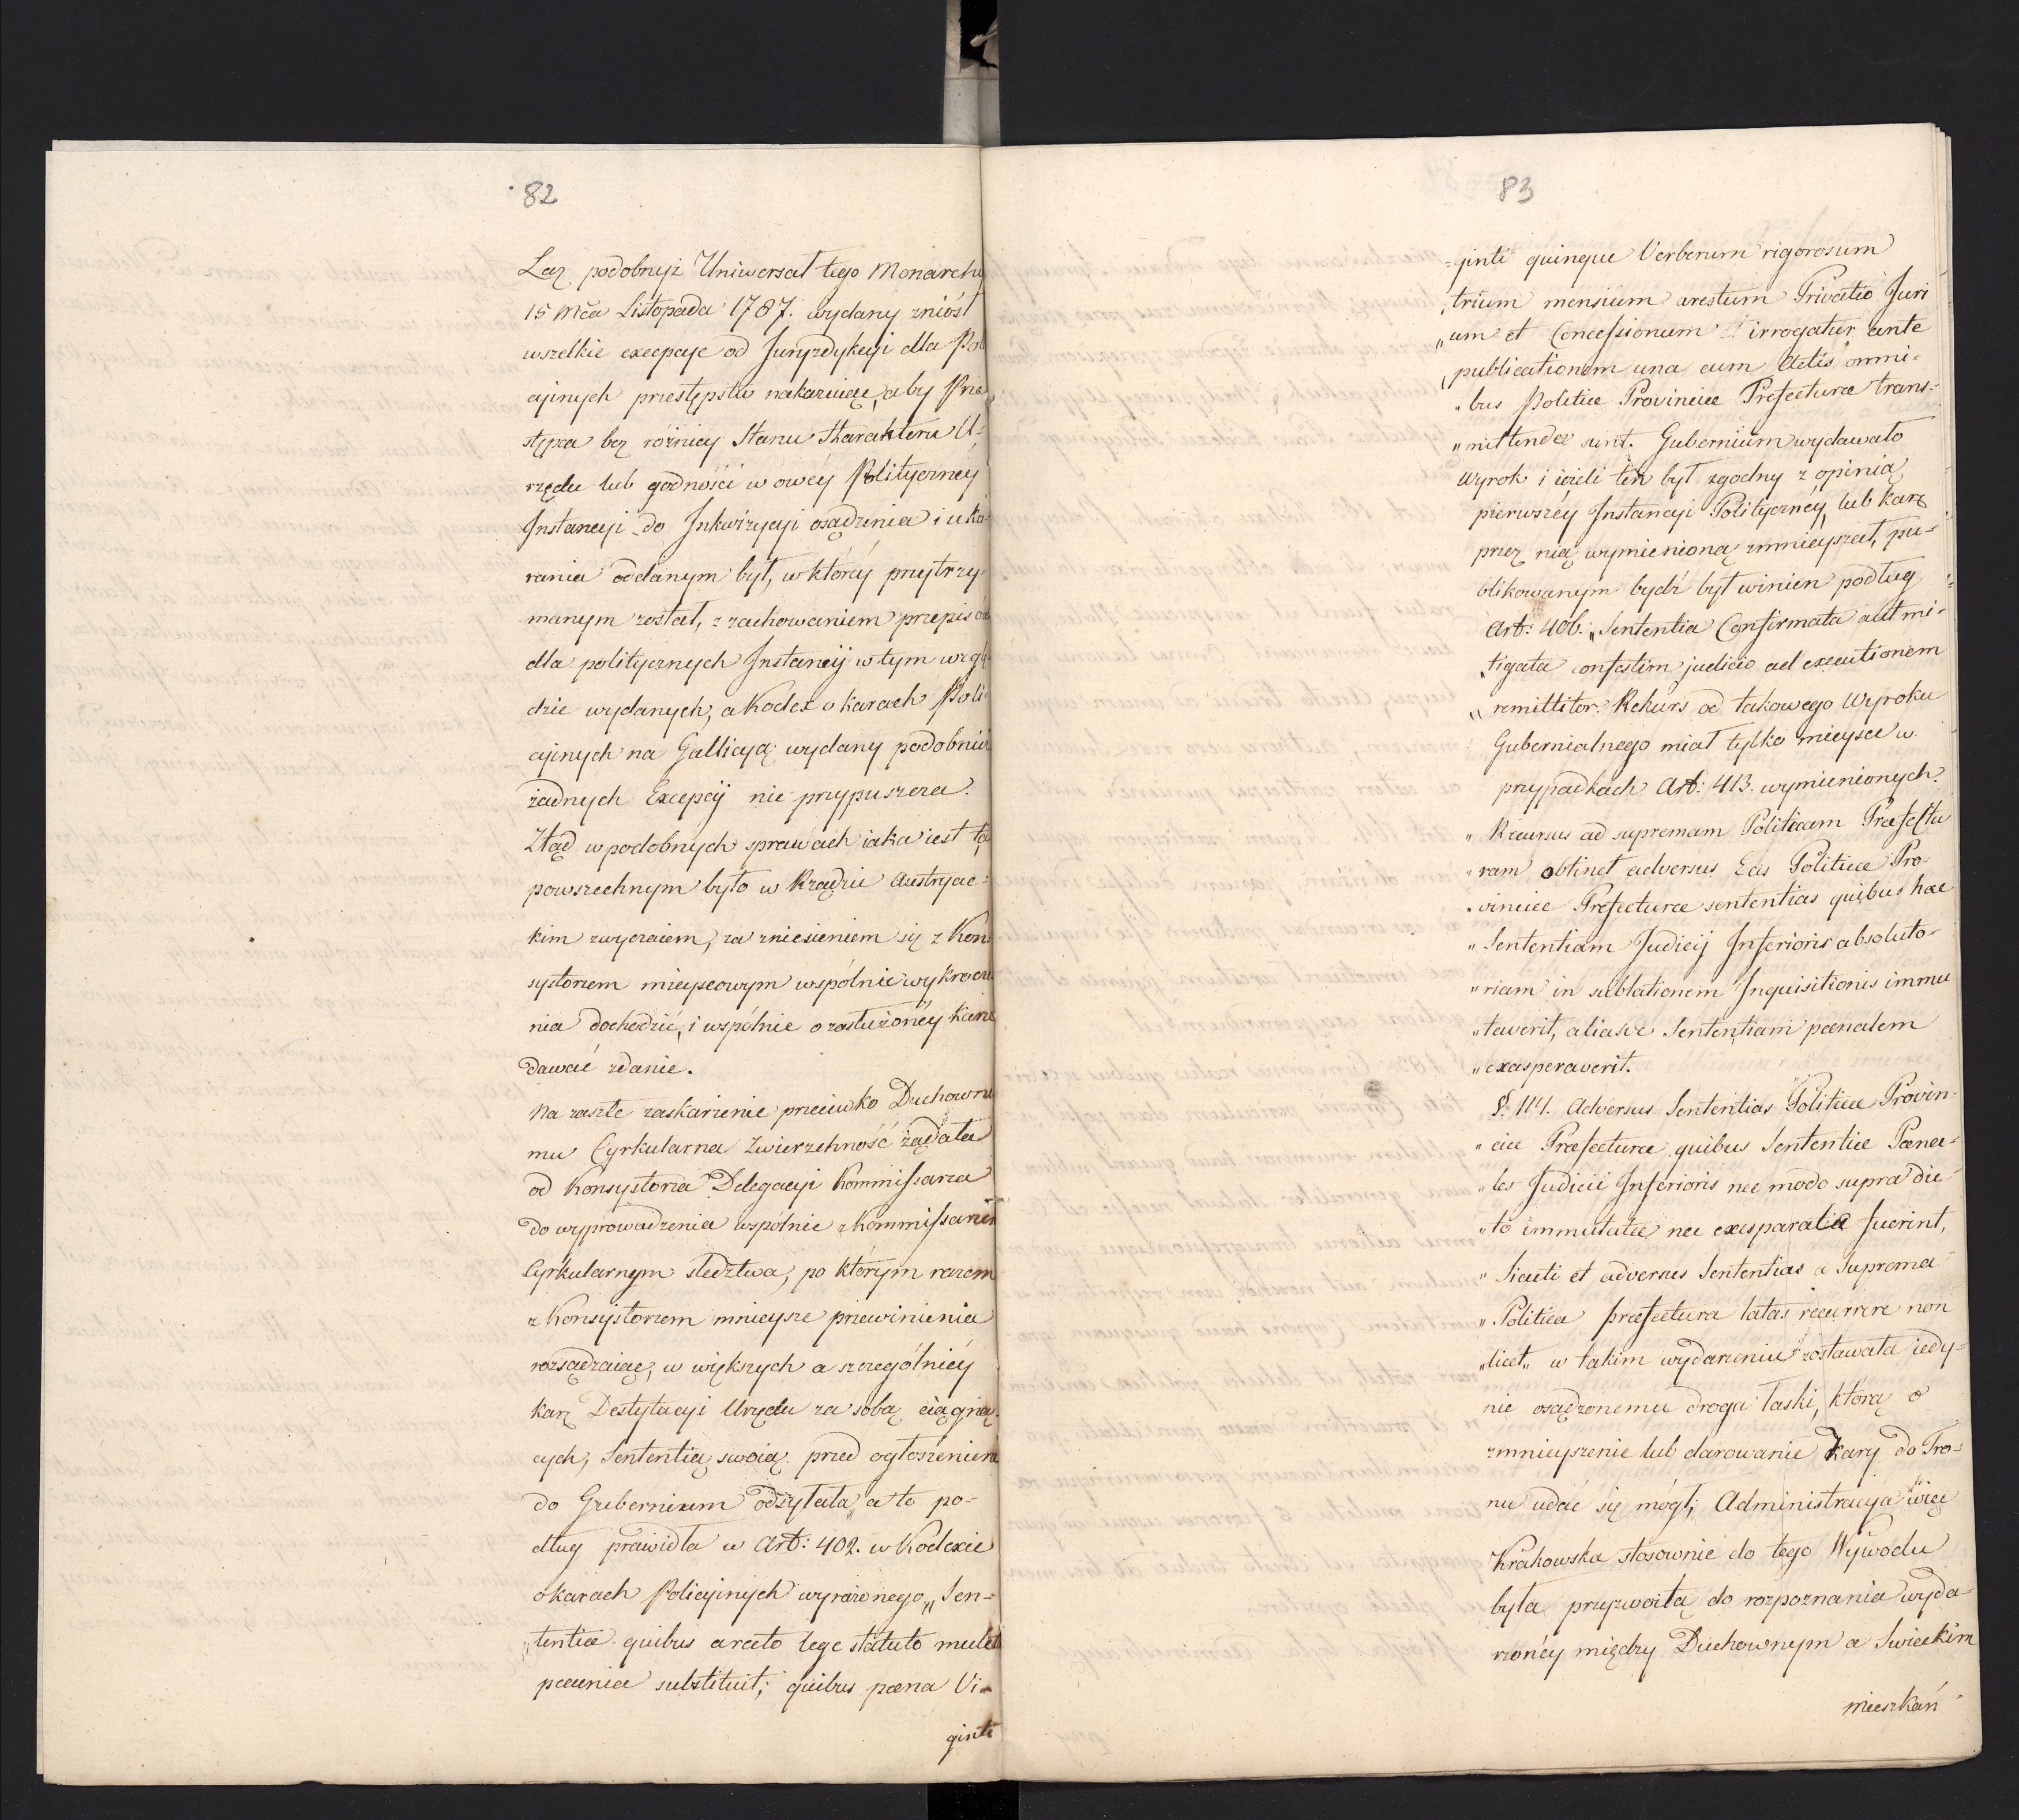 82
Laz podobnyż Uniwersał tego Monarchy
15 Mca Listopada 1787. wydany zniósł
wszelkie excepcye od Juryzdykcyi dla Poli
cyinych przestępstw nakazuiąc, aby Prze
stępca bez różnicy Stanu Charakteru U-
rzędu lub godności w owéy Polityczney
Instancyi do Inkwizycyi osądzenia i uka-
rania oddanym był, w któréy przytrzy-
manym został, z zachowaniem przepisów
dla politycznych Instancij w tym wzglę
dzie wydanych, a Kodex o karach Poli
cyinych na Gallicyą wydany podobnie
żadnych Excepcij nie przypuszcza.
Ztąd w podobnych sprawach iaka iest ta,
powszechnym było w Rządzie Austryac-
kim zwyczaiem, za zniesieniem się z Kon
systorzem mieyscowym wspólnie wykrocze
nia dochodzić, i wspólnie o zasłużoney karze
dawać zdanie.
Na zaszłe zaskarżenie przeciwko Duchowne
mu Cyrkularna Zwierzchność żądała
od Konsystorza Delegacyi Kommissarza
do wyprowadzenia wspólnie z Kommissarzem
Cyrkularnym sledztwa, po którym razem
z Konsystorzem mnieysze przewinienia
rozsądzaiąc, w większych a szczególniéy
karę Destytucyi Urzędu za sobą ciągną-
cych, Sententią swoią przed ogłoszeniem
do Gubernium odsyłała, a to po-
dług prawidła w Art: 402. w Kodexie
o karach Policyinych wyrażonego „Sen-
„tentiæ quibus arcto lege statuto mulcta
pecunia substituit; quibus pœna Vi-
ginti
83
=ginti quinque Verberum rigorosum
„trium mensium arestum Privatio Juri
„um et Concessionum irrogatur ante
„publicationem una cum Actis omni-
„bus Politicæ Provinciæ Prefecturæ trans-
„mittendæ sunt. Gubernium wydawało
Wyrok i ieżeli ten był zgodny z opinią
pierwszéy Instancyi Polityczney, lub karę
przez nią wymienioną zmnieyszał, pu-
blikowanym bydź był winien podług
Art: 406. „Sententia Confirmata aut mi-
„tigata confestim judicio ad executionem
„remittitor. Rekurs od takowego Wyroku
Gubernialnego miał tylko mieysce w
przypadkach Art: 413. wymienionych.
„Recursus ad supremam Politicam Præfectu
„ram obtinet adversus Eas Politicæ Pro-
„vinciæ Prefecturæ sententias quibus hæc
„Sententiam Judicij Inferioris absoluto-
„riam in sublationem Inquisitionis immu
„taverit, aliasve Sententiam pœnalem
„exasperaverit.
§. 114. Adversus Sententias Politicæ Provin-
„ciæ Præfecturæ quibus Sententiæ Pœna-
„les Judicii Inferioris nec modo supra dic-
„to immutatæ nec exasparatæ fuerint,
„Sicuti et adversus Sententias a Suprema
„Politica præfectura latas recurrere non
„licet„ w takim wydarzeniu zostawała iedy-
nie osądzonemu droga łaski, którą o
zmnieyszenie lub darowanie kary do Tro-
nu udać się mógł; Administracya więc
Krakowska stosownie do tego Wywodu
była przyzwoitą do rozpoznania wyda
rzonéy między Duchownym a Swieckim
mieszkań-